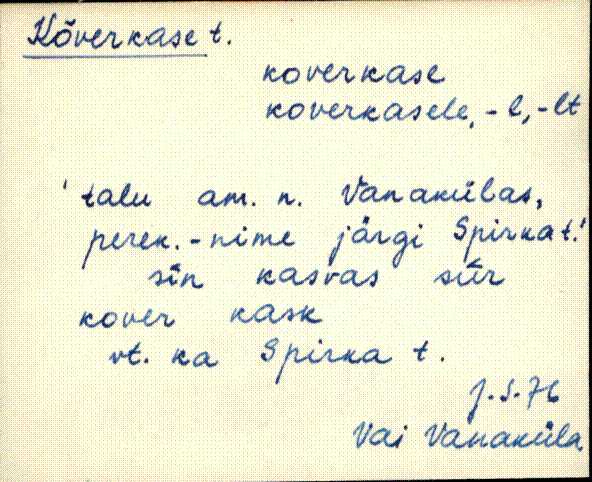 Kõverkase t.
koverkase
koverkasele, -l, -lt
'talu am. n. Vanakülas,
perek.-nime järgi Spirka t.'
sīn kasvas sūr
kover kask
vt. ka Spirka t.
J.S.76
Vai Vanaküla